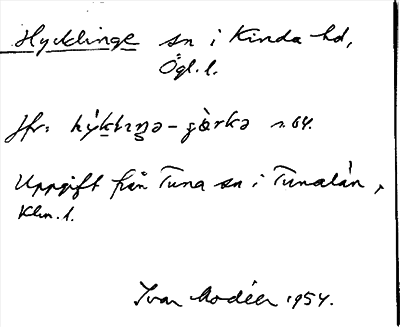 Hycklinge sn i Kinda hd,
Ögl. l.
Jfr: hý̀klıŋə-gòrkə s. 64.
Uppgift från Tuna sn i Tunalän,
Klm. l.
Ivar Modéer 1954.